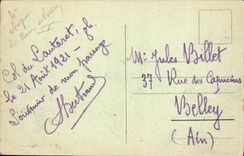 Col du Lautaret,
le 21 Août 1921 -
Souvenir de mon passage
Bertrand
Mr Jules Billet
37 Rue des Capucins
Belley
(Ain)